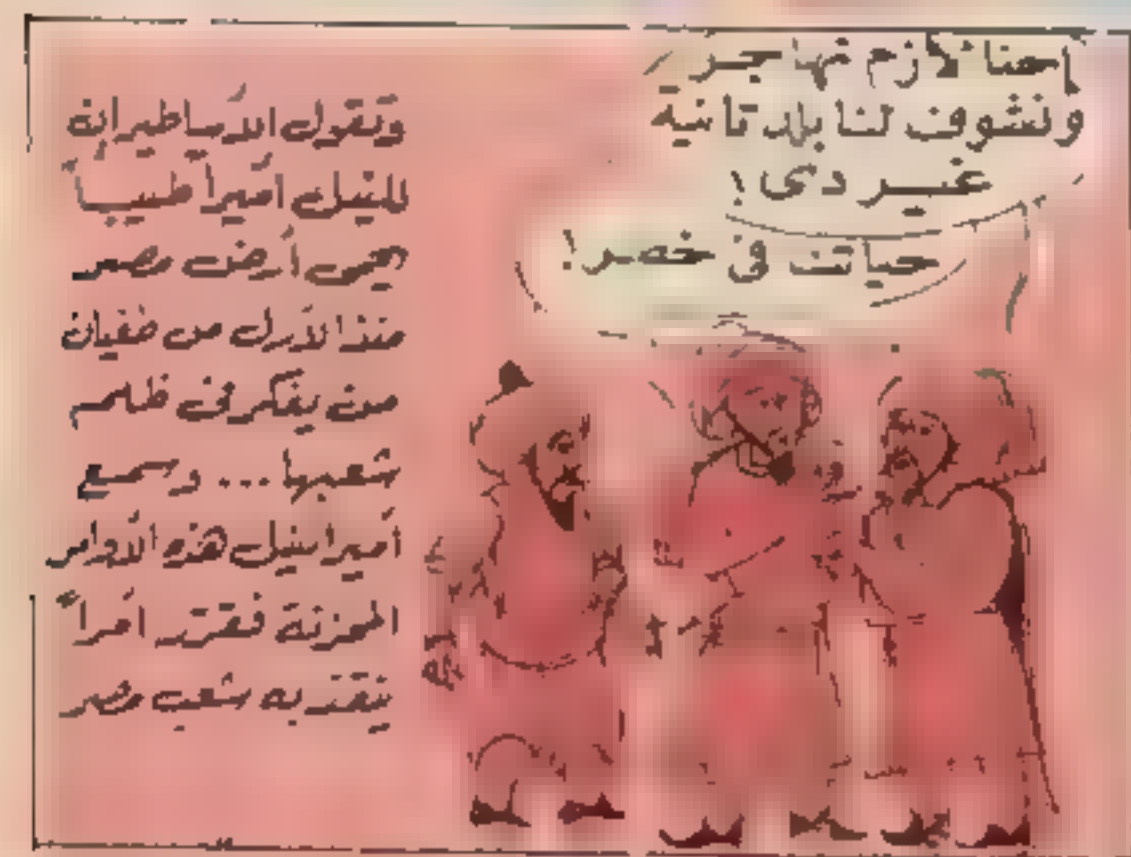 احنا لازم نهاجر
ونشوف لنا بلد تانية
غير دى!
حياتنا فى خطر!
وتقول الأساطير ان
للنيل أميراً طيباً
يحمى أرض مصر
منذ الأزل من
من يفكر فى ظلم
شعبها... وسمع
أمير النيل هذه الأوامر
المحزنة فقرر أمراً
ينقذ به شعب مصر